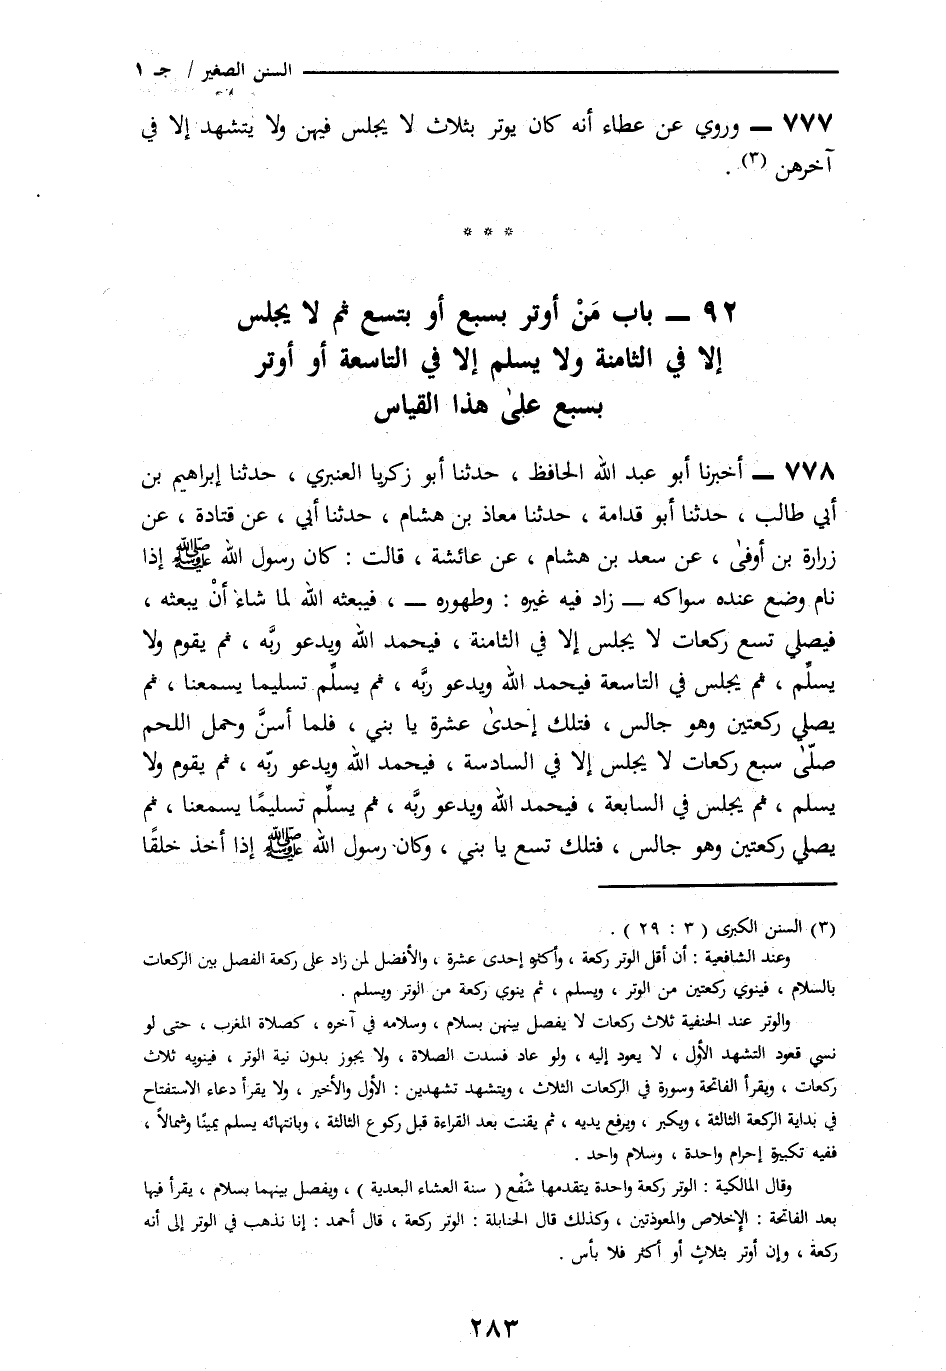 السنن الصغير / جـ ١
٧٧٧ ــ وروي عن عطاء أنه كان يوتر بثلاث لا يجلس فيهن ولا يتشهد إلا في
آخرهن (٣) .
* * *
٩٢ ــ باب مَنْ أوتر بسبع أو بتسع ثم لا يجلس
إلا في الثامنة ولا يسلم إلا في التاسعة أو أوتر
بسبع علىٰ هذا القياس
٧٧٨ ــ أخبرنا أبو عبد الله الحافظ ، حدثنا أبو زكريا العنبري ، حدثنا إبراهيم بن
أبي طالب ، حدثنا أبو قدامة ، حدثنا معاذ بن هشام ، حدثنا أبي ، عن قتادة ، عن
زرارة بن أوفىٰ ، عن سعد بن هشام ، عن عائشة ، قالت : كان رسول الله ﷺ إذا
نام وضع عنده سواكه ــ زاد فيه غيره : وطهوره ــ ، فيبعثه الله لما شاء أنْ يبعثه ،
فيصلي تسع ركعات لا يجلس إلا في الثامنة ، فيحمد الله ويدعو ربَّه ، ثم يقوم ولا
يسلِّم ، ثم يجلس في التاسعة فيحمد الله ويدعو ربَّه ، ثم يسلِّم تسليما يسمعنا ، ثم
يصلي ركعتين وهو جالس ، فتلك إحدىٰ عشرة يا بني ، فلما أسنَّ وحمل اللحم
صلّىٰ سبع ركعات لا يجلس إلا في السادسة ، فيحمد الله ويدعو ربّه ، ثم يقوم ولا
يسلم ، ثم يجلس في السابعة ، فيحمد الله ويدعو ربَّه ، ثم يسلِّم تسليمًا يسمعنا ، ثم
يصلي ركعتين وهو جالس ، فتلك تسع يا بني ، وكان رسول الله ﷺ إذا أخذ خلقًا
(٣) السنن الكبرى ( ٣ : ٢٩ ) .
وعند الشافعية : أن أقل الوتر ركعة ، وأكثره إحدى عشرة ، والأفضل لمن زاد على ركعة الفصل بين الركعات
بالسلام ، فينوي ركعتين من الوتر ، ويسلم ، ثم ينوي ركعة من الوتر ويسلم .
والوتر عند الحنفية ثلاث ركعات لا يفصل بينهن بسلام ، وسلامه في آخره ، كصلاة المغرب ، حتى لو
نسي قعود التشهد الأول ، لا يعود إليه ، ولو عاد فسدت الصلاة ، ولا يجوز بدون نية الوتر ، فينويه ثلاث
ركعات ، ويقرأ الفاتحة وسورة في الركعات الثلاث ، ويتشهد تشهدين : الأول والأخير ، ولا يقرأ دعاء الاستفتاح
في بداية الركعة الثالثة ، ويكبر ، ويرفع يديه ، ثم يقنت بعد القراءة قبل ركوع الثالثة ، وبانتهائه يسلم يمينًا وشمالاً ،
ففيه تكبيرة إحرام واحدة ، وسلام واحد .
وقال المالكية : الوتر ركعة واحدة يتقدمها شَفْع ( سنة العشاء البعدية ) ، ويفصل بينهما بسلام ، يقرأ فيها
بعد الفاتحة : الإخلاص والمعوذتين ، وكذلك قال الحنابلة : الوتر ركعة ، قال أحمد : إنا نذهب في الوتر إلى أنه
ركعة ، وإن أوتر بثلاثٍ أو أكثر فلا بأس .
٢٨٣